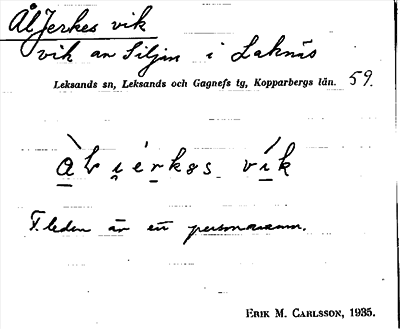 ÅlJerkes vik
vik av Siljan i Laknäs
Leksands sn, Leksands och Gagnefs tg, Kopparbergs län. 59.
vík
F. leden är ett personnamn.
ERIK M. CARLSSON, 1935.